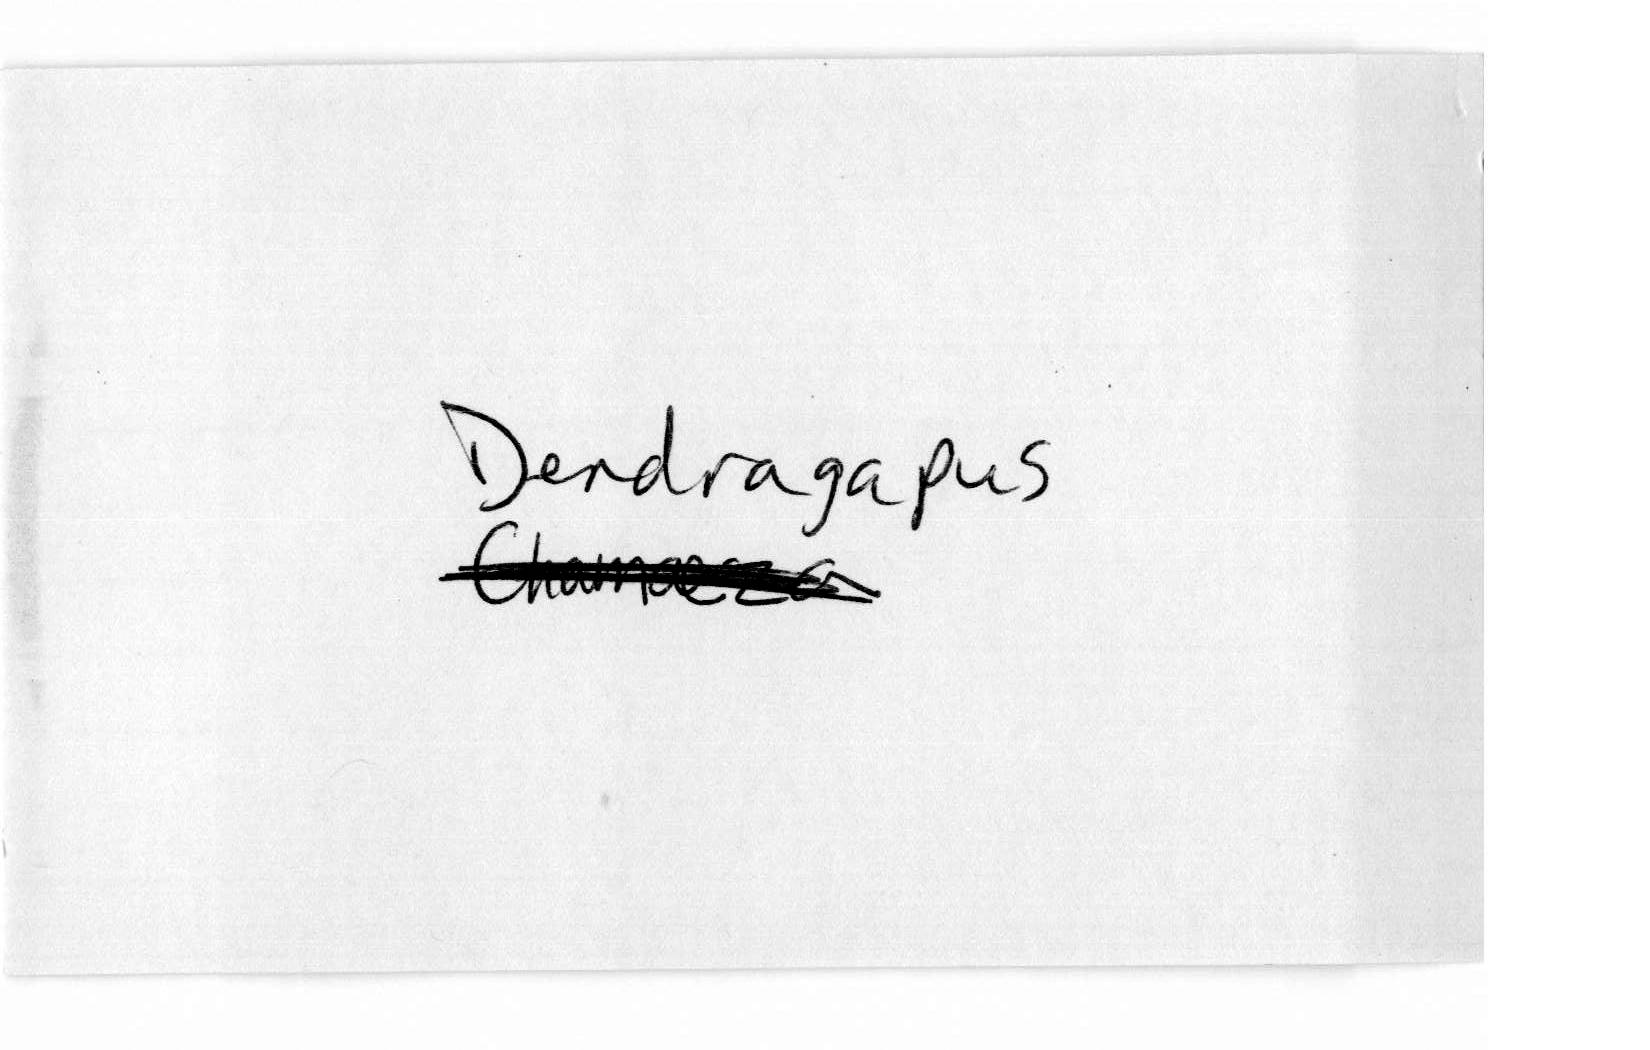 Dendragapus
Chamaeza